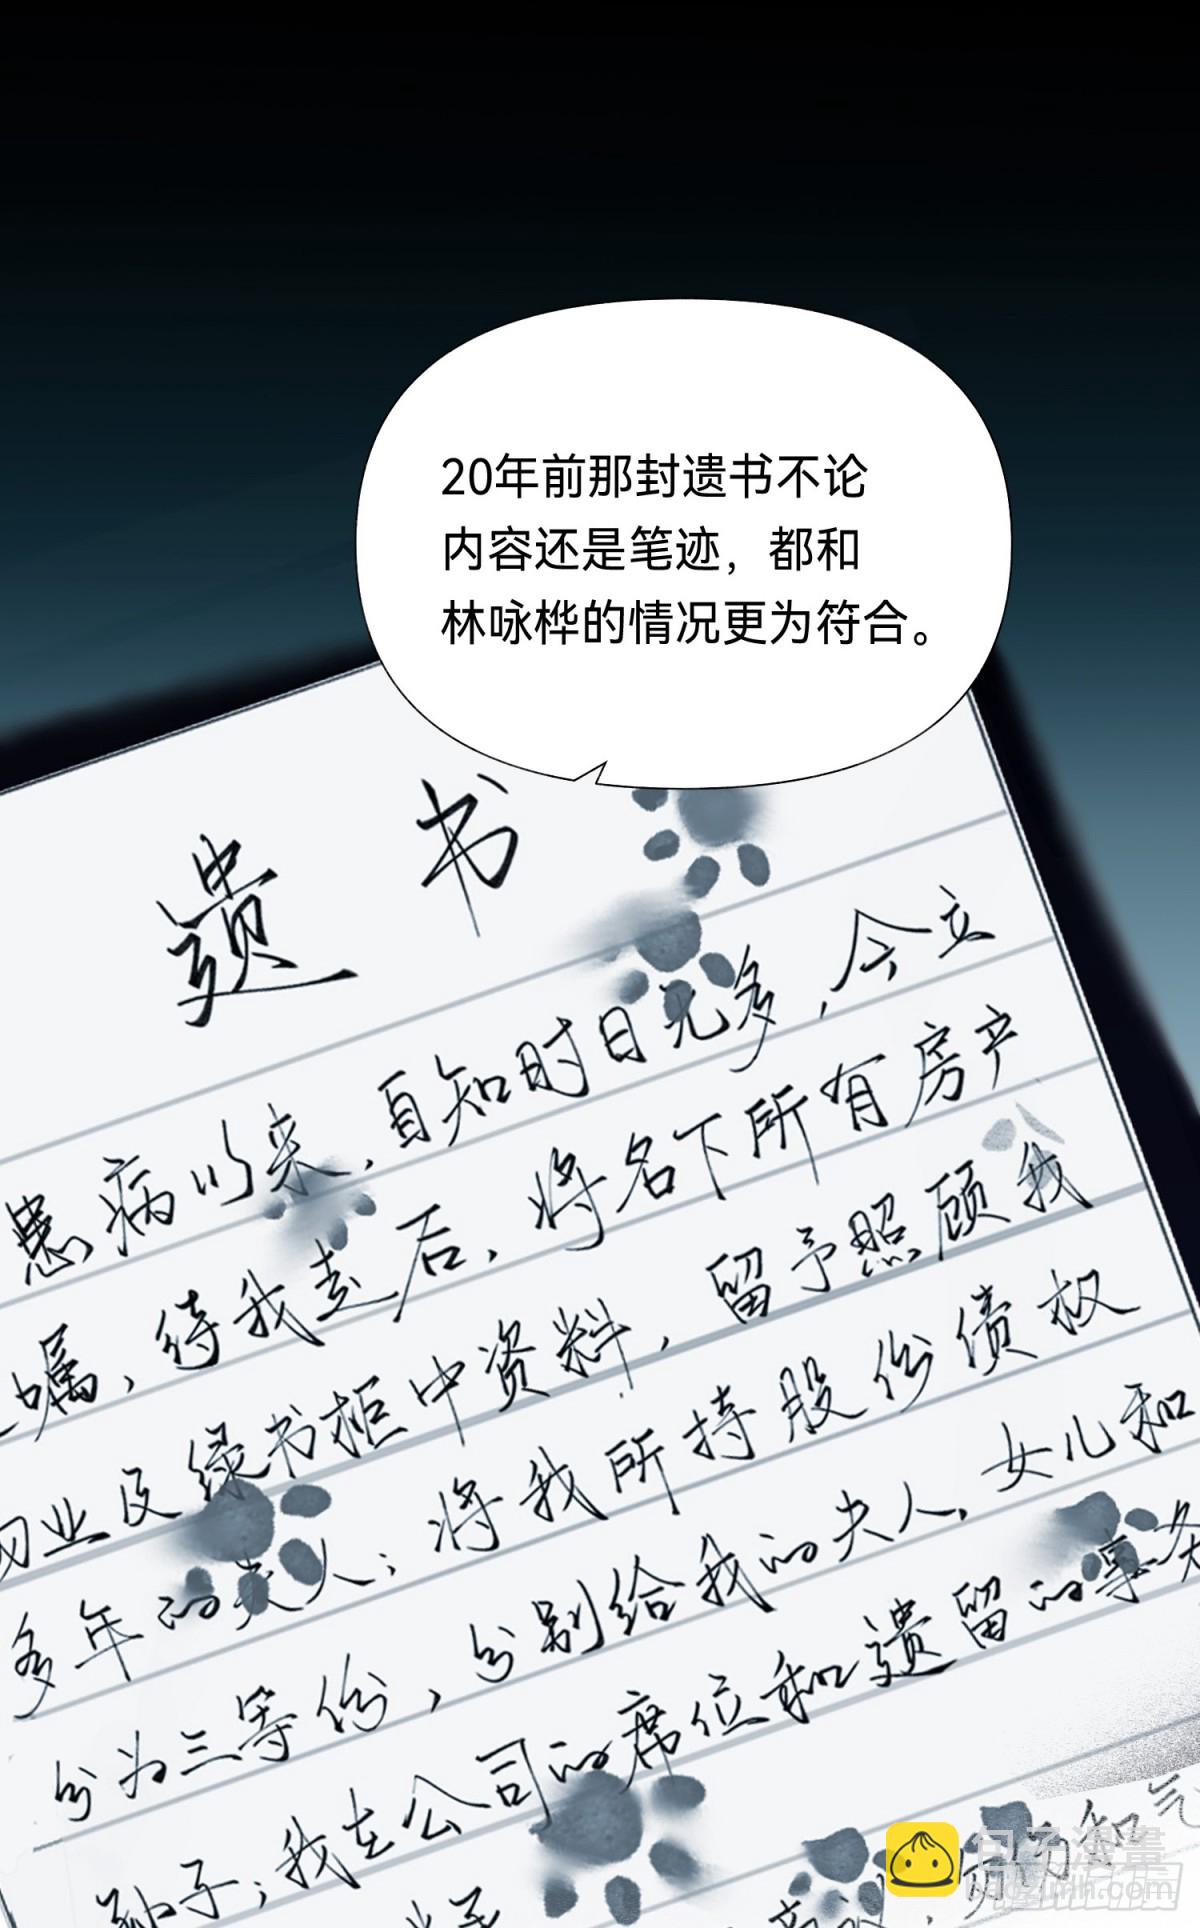 20年前那封遗书不论
内容还是笔迹，都和
林咏桦的情况更为符合。
遗书
患病以来，自知时日无多，今立
嘱，待我走后，将名下所有房产
物业及绿书柜中资料，留予照顾我
多年的夫人；将我所持股份债权
分为三等份，分别给我的夫人、女儿和
孙子；我在公司的席位和遗留的事务
包子漫畫
baozimh.com